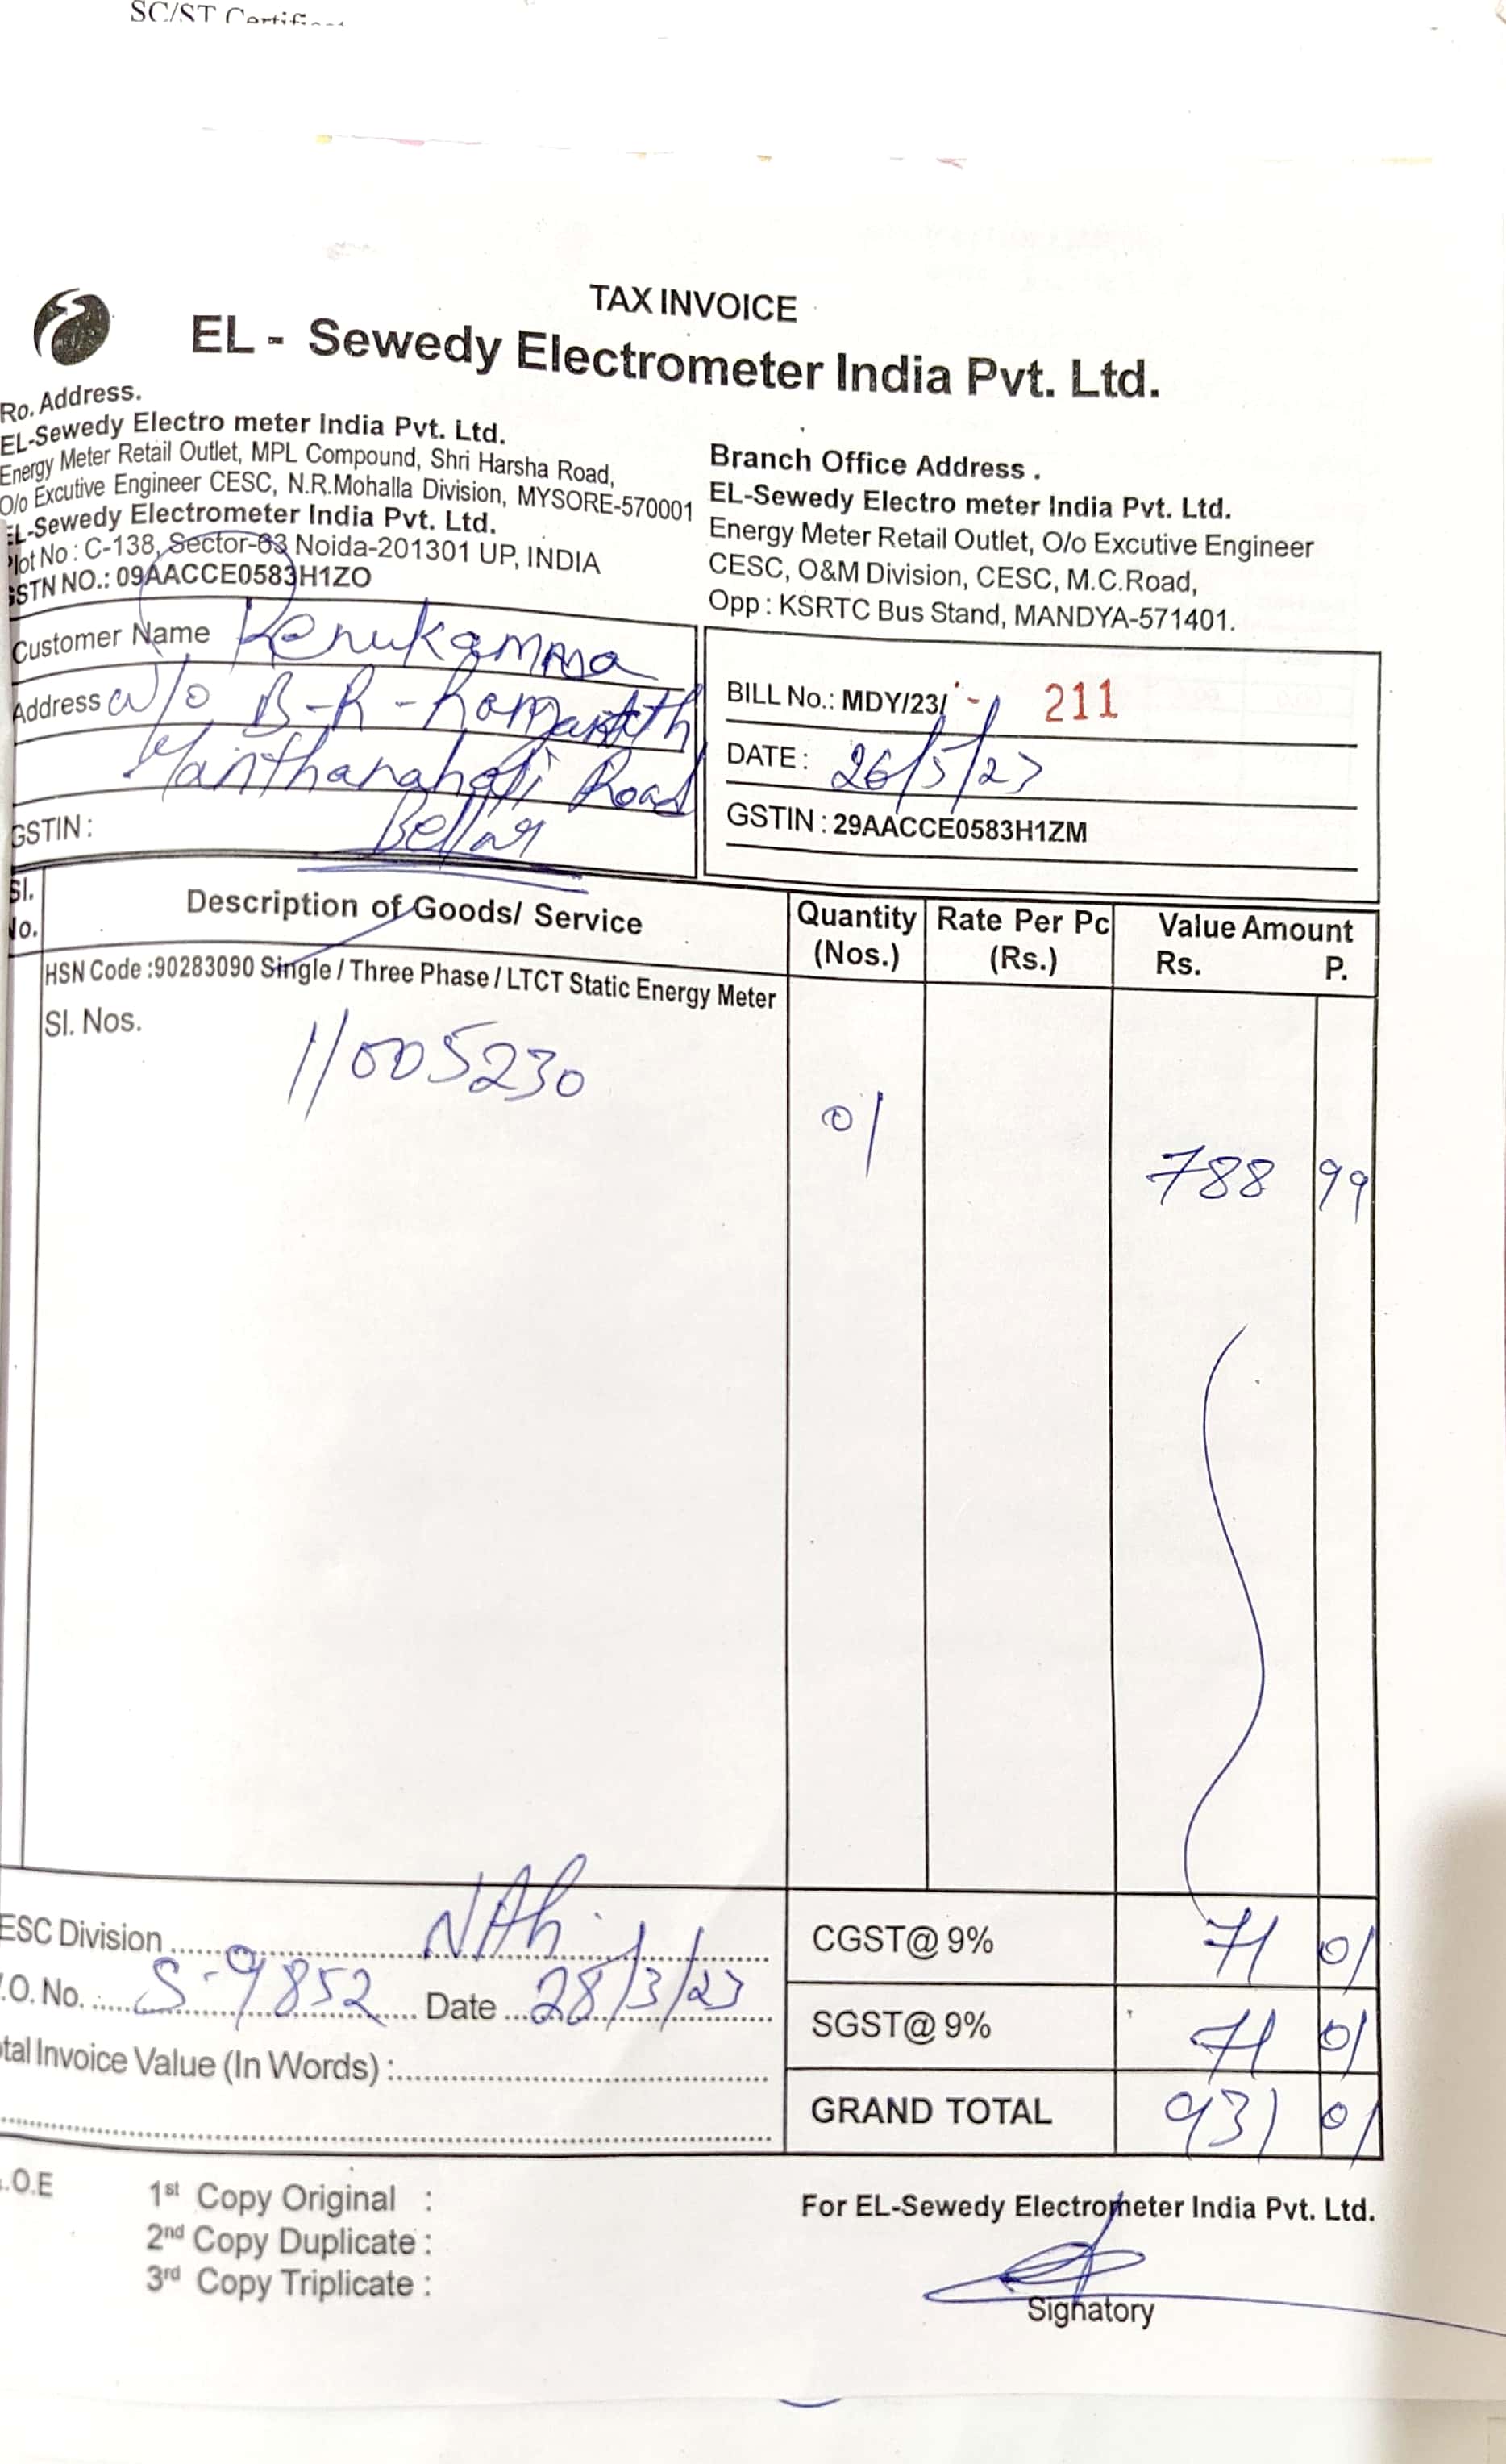 SC/ST Certificat
TAX INVOICE
EL - Sewedy Electrometer India Pvt. Ltd.
Ro. Address.
EL-Sewedy Electro meter India Pvt. Ltd.
Energy Meter Retail Outlet, MPL Compound, Shri Harsha Road,
O/o Excutive Engineer CESC, N.R.Mohalla Division, MYSORE-570001
EL-Sewedy Electrometer India Pvt. Ltd.
Plot No : C-138, Sector-63 Noida-201301 UP, INDIA
GSTN NO.: 09AACCE0583H1ZO
Branch Office Address .
EL-Sewedy Electro meter India Pvt. Ltd.
Energy Meter Retail Outlet, O/o Excutive Engineer
CESC, O&M Division, CESC, M.C.Road,
Opp : KSRTC Bus Stand, MANDYA-571401.
Customer Name Renukamma
Address W/o B-R-
Road
GSTIN :
BILL No.: MDY/23/ - 211
DATE : 26/5/23
GSTIN : 29AACCE0583H1ZM
Sl. No. Description of Goods/ Service Quantity (Nos.) Rate Per Pc (Rs.) Value Amount Rs. P.
HSN Code :90283090 Single / Three Phase / LTCT Static Energy Meter
Sl. Nos.
11005230
01 788 99
ESC Division
.O. No. S-9852 Date 28/3/23
tal Invoice Value (In Words) :
CGST@ 9% 71 01
SGST@ 9% 71 01
GRAND TOTAL 931 01
.O.E
1st Copy Original :
2nd Copy Duplicate :
3rd Copy Triplicate :
For EL-Sewedy Electrometer India Pvt. Ltd.
Signatory